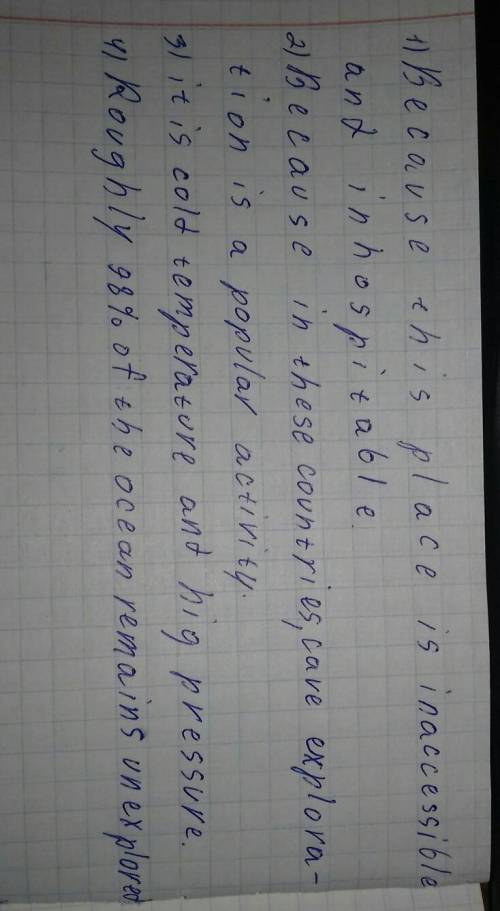 1) Because this place is inaccessible
and inhospitable.
2) Because in these countries, cave explora-
tion is a popular activity.
3) it is cold temperature and hig pressure.
4) Roughly 98% of the ocean remains unexplored